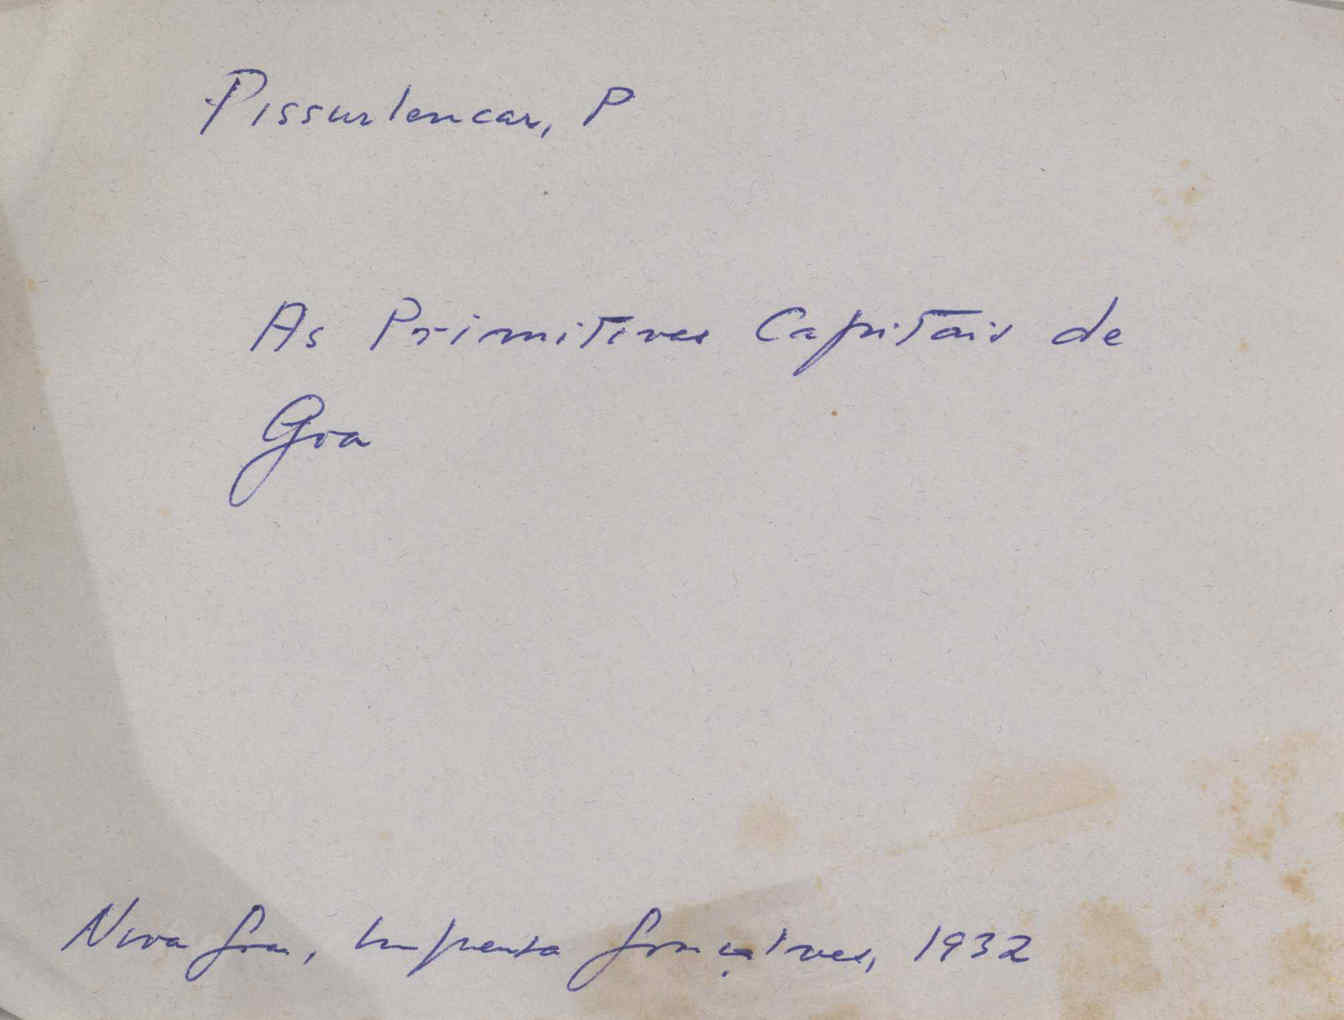 Pissurlencar, P
As Primitivas Capitais de
Goa
Nova Goa, Imprensa Gonçalves, 1932